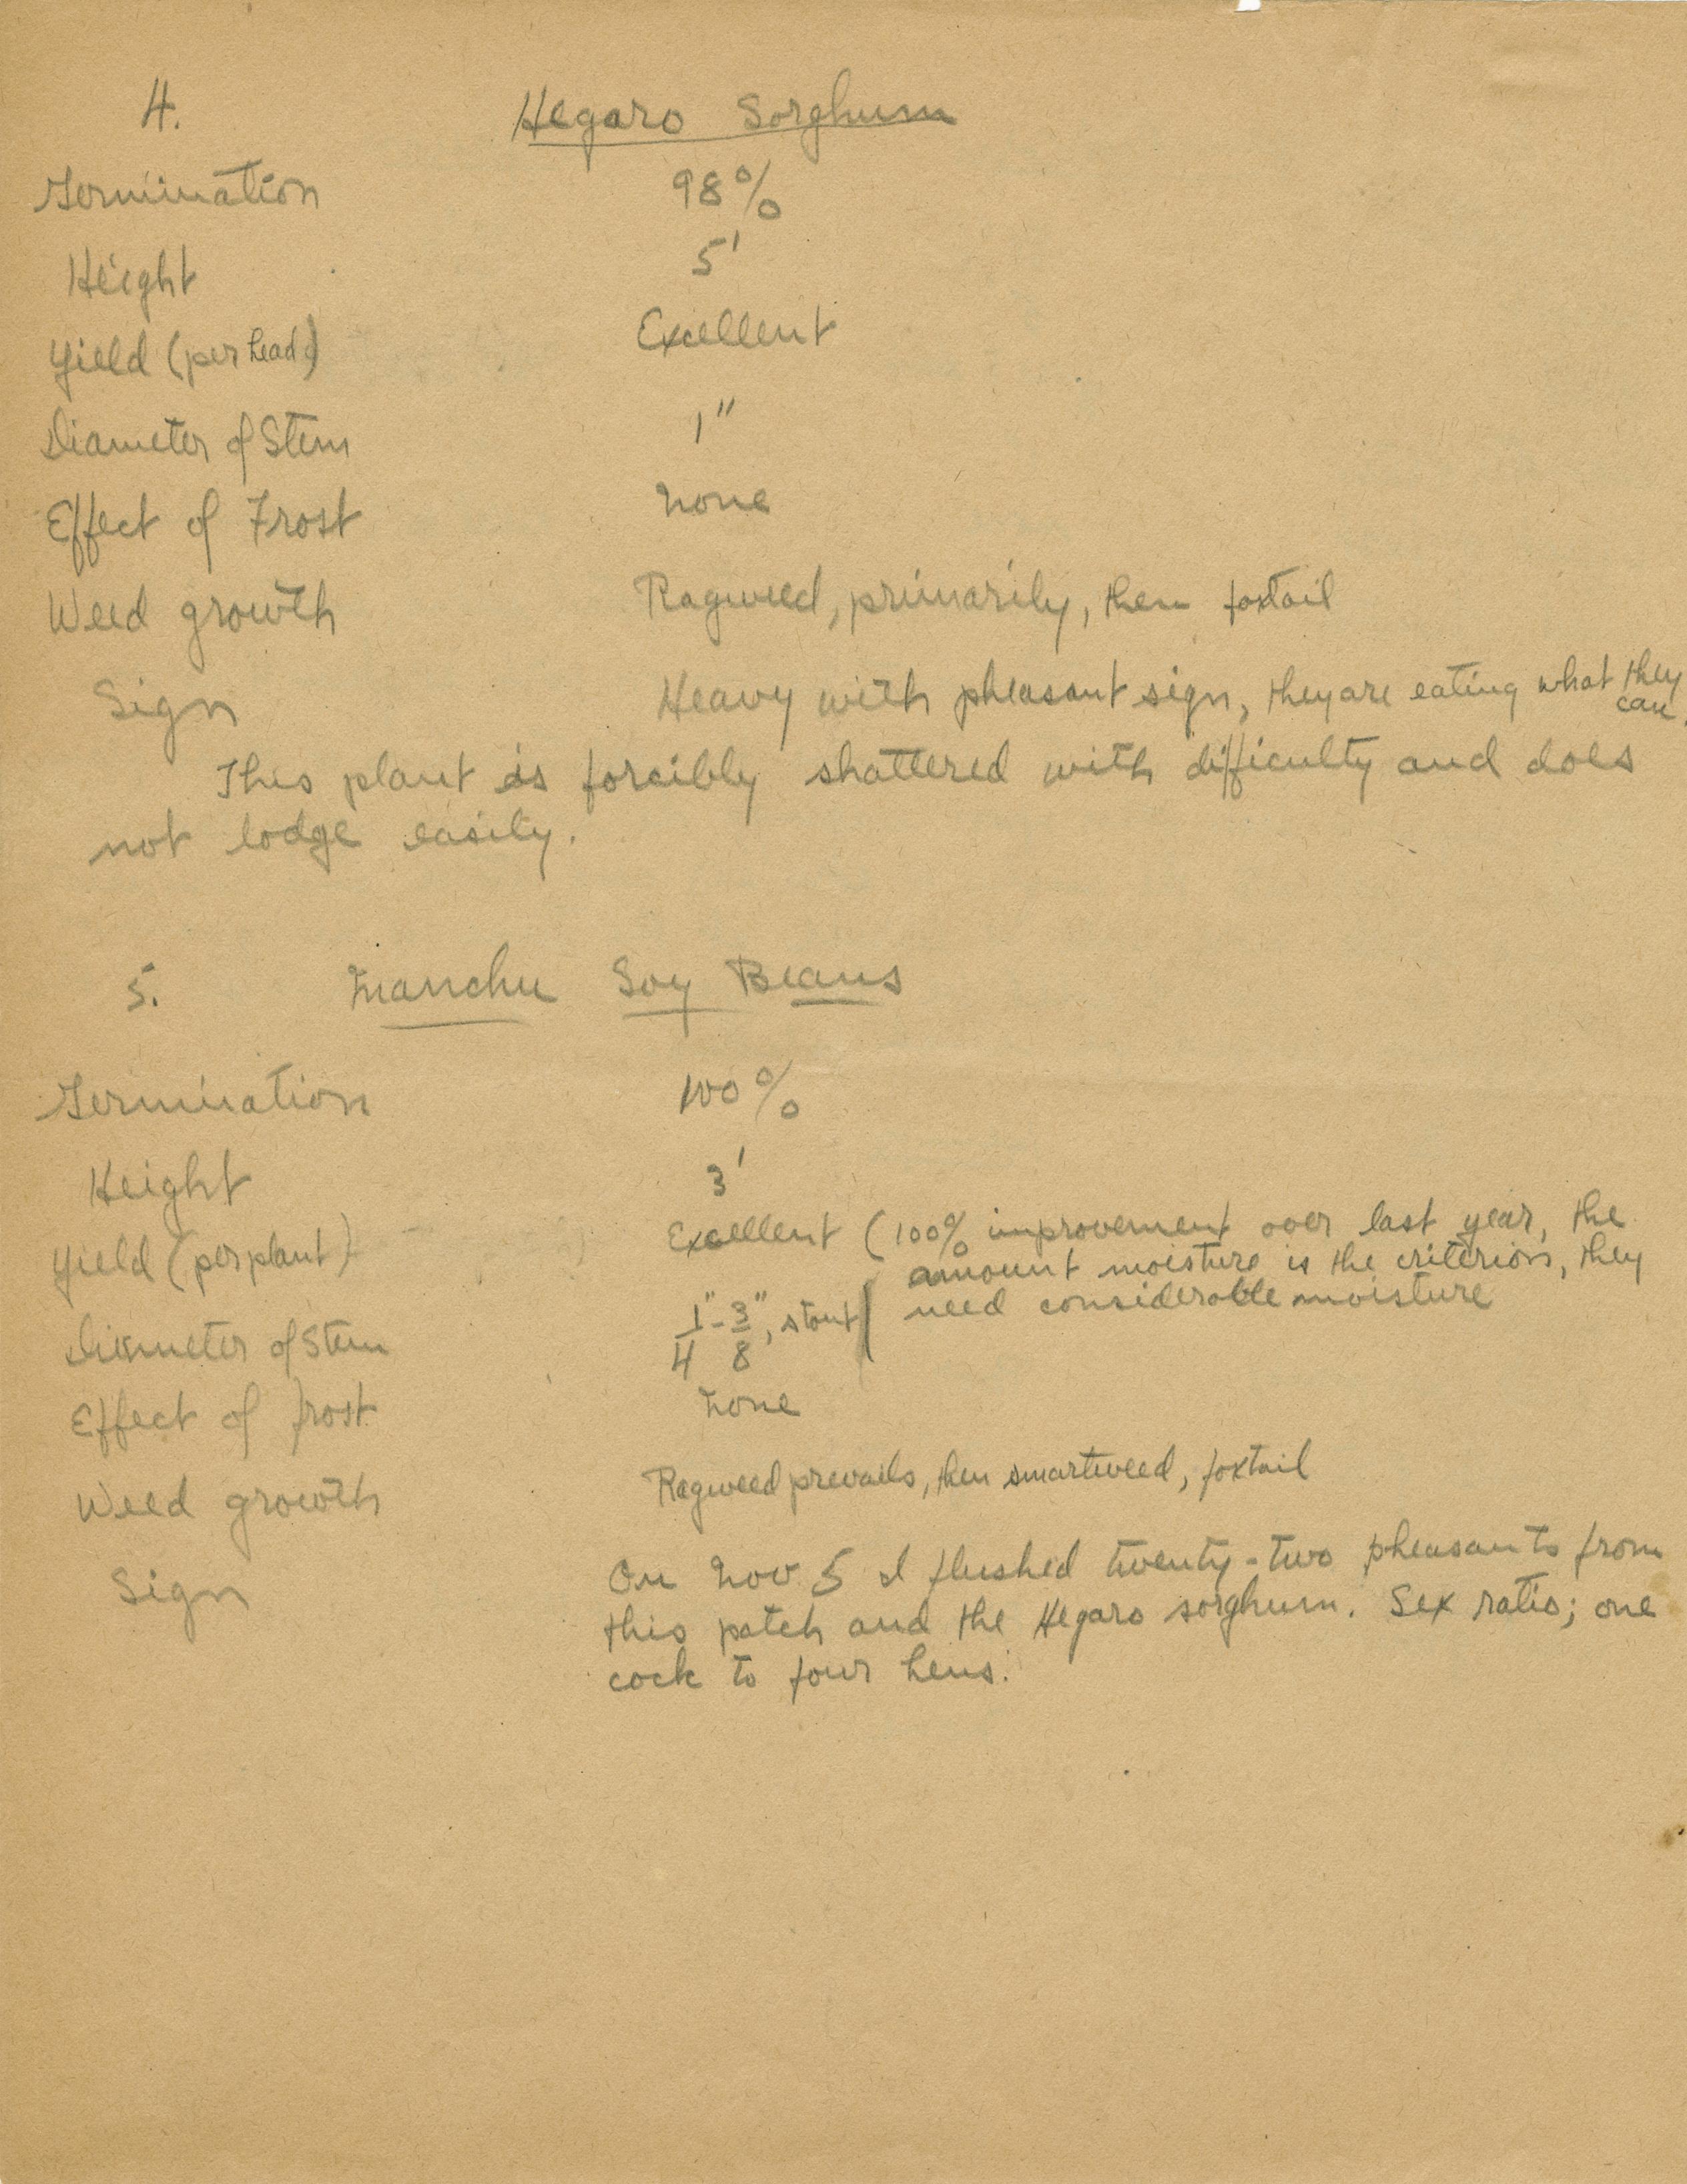 4. Hegaro Sorghum
Germination 98%
Height 5'
Yield (per head) Excellent
Diameter of Stem 1"
Effect of Frost None
Weed growth Ragweed, primarily, then foxtail
Sign Heavy with pheasant sign, they are eating what they can.
This plant is forcibly shattered with difficulty and does
not lodge easily.
5. Manchu Soy Beans
Germination 100%
Height 3'
Yield (per plant) Excellent (100% improvement over last year, the
amount moisture is the criterion, they
need considerable moisture
Diameter of Stem 1/4" - 3/8", stout
Effect of frost None
Weed growth Ragweed prevails, then smartweed, foxtail
Sign On Nov. 5 I flushed twenty-two pheasants from
this patch and the Hegaro sorghum. Sex ratio; one
cock to four hens.